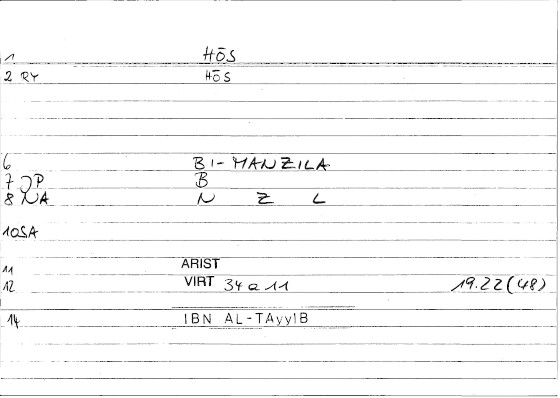 1 HŌS
2 RY HŌS
6 BI-MANZILA
7 OP B
8 NA N Z L
10SA
11 ARIST
12 VIRT 34 a 11 19.22(48)
14 IBN AL-TAyyIB